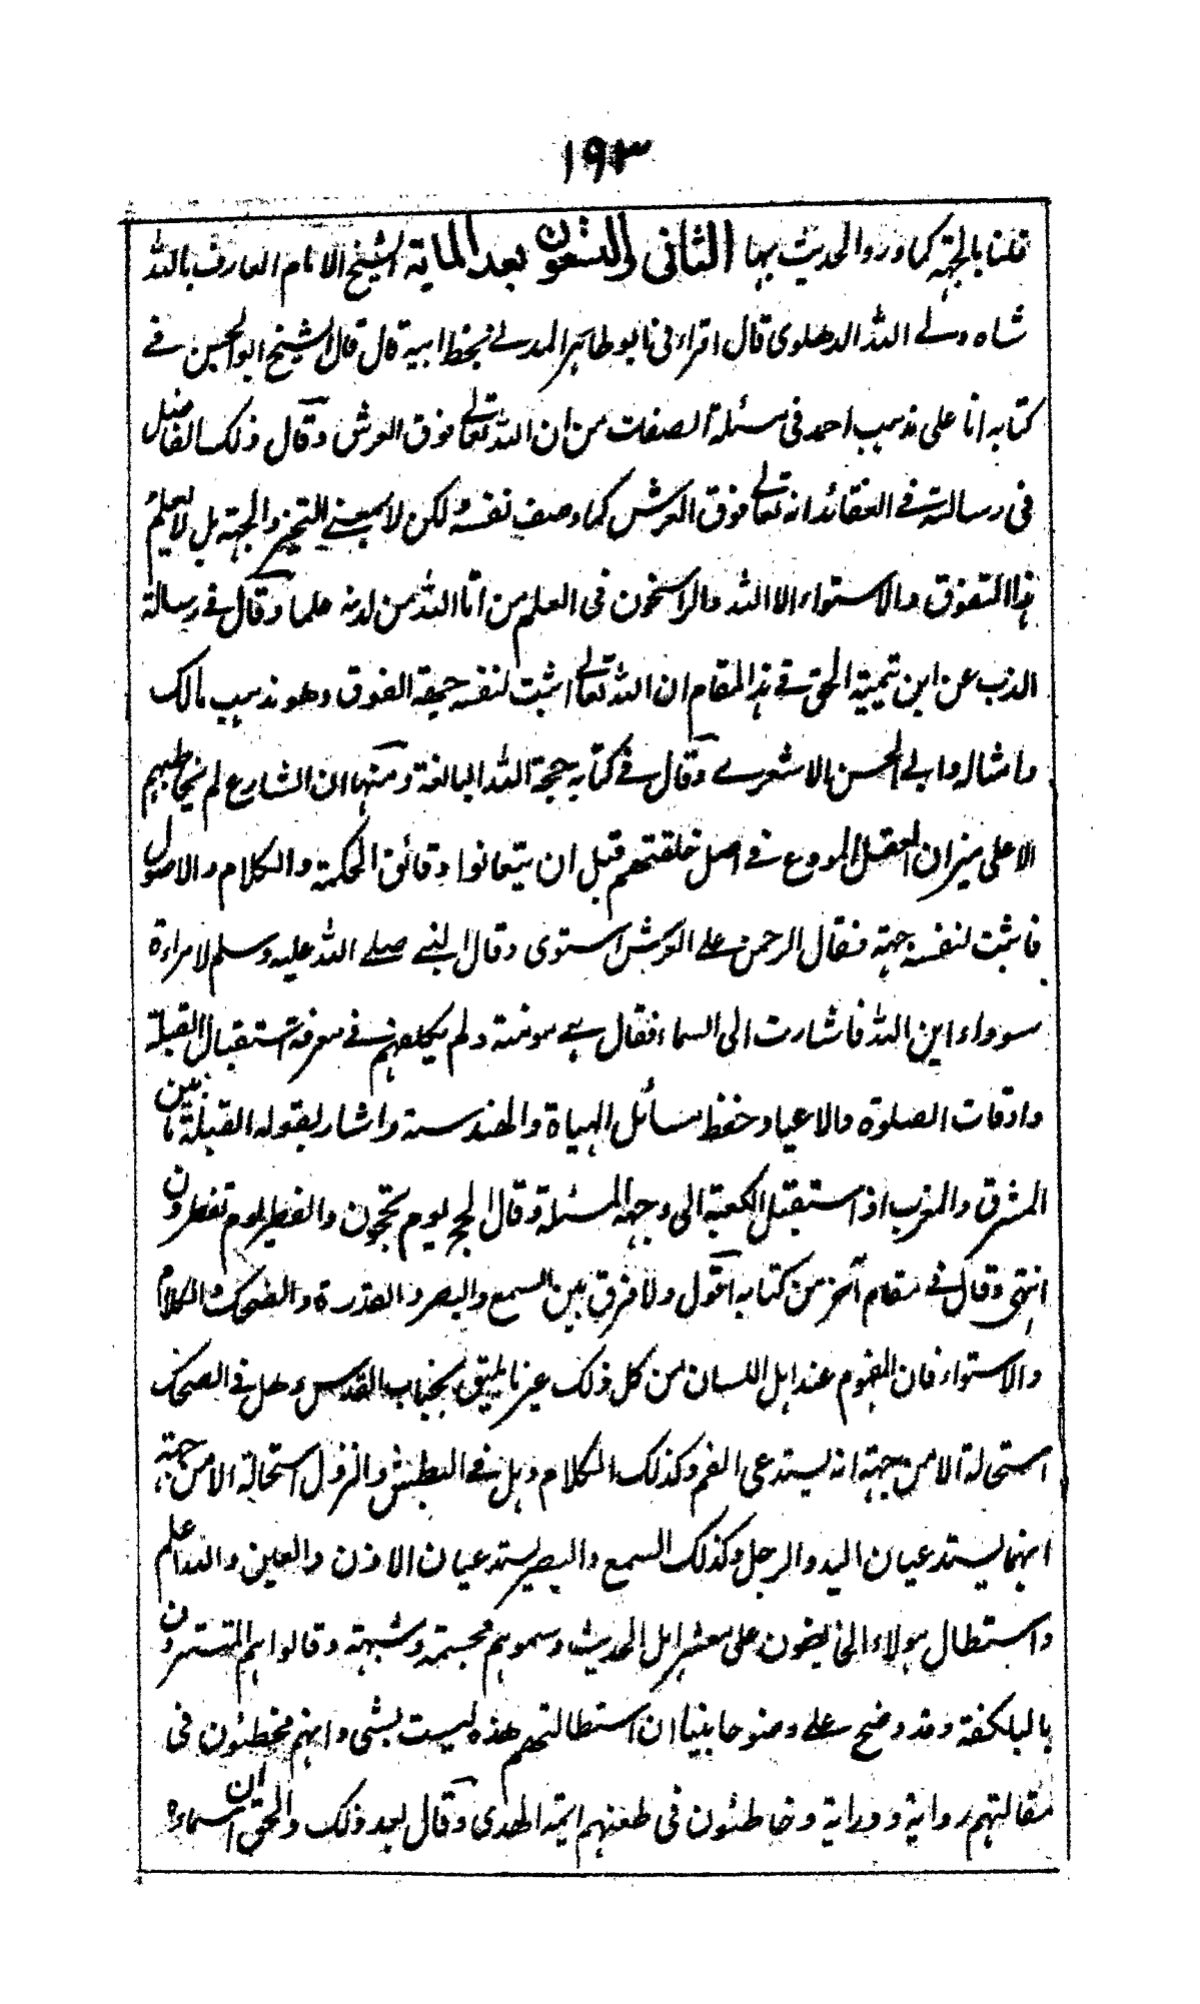 ١٩٣
قلنا بالجهة كما ورد الحديث بها الثانى والتسعون بعد الماية الشيخ الامام العارف بالله
شاه ولے الله الدهلوى قال اقراءنى ابو طاهر المدنے بخط ابيه قال قال الشيخ ابو الحسن فے
كتابه انا على مذهب احمد فى مسئلة الصفات من ان الله تعالى فوق العرش وقال ذلك الفاضل
فى رسالته فے العقائد انه تعالى فوق العرش كما وصف نفسه ولكن لا بمعنے التحيز والجهة بل لا يعلم
هذا التفوق والاستواء الا الله والراسخون فى العلم من اتاه الله من لدنه علما وقال فے رسالة
الذب عن ابن تيمية الحق فے هذا المقام ان الله تعالى اثبت لنفسه جهة الفوق وهو مذهب مالك
وامثاله وابے الحسن الاشعرے وقال فے كتابه حجة الله البالغة ومنها ان الشارع لم يخاطبهم
الا على ميزان العقل المودع فے اصل خلقتهم قبل ان يتعانوا دقائق الحكمة والكلام والاصول
فاثبت لنفسه جهة فقال الرحمن علے العرش استوى وقال النبے صلے الله عليه وسلم لامراءة
سوداء اين الله فاشارت الى السماء فقال هے مومنة ولم يكلفهم فے معرفة استقبال القبلة
واوقات الصلوة والاعياد حفظ مسائل الهياة والهندسة واشار بقوله القبلة ما بين
المشرق والمغرب اذا استقبل الكعبة الى وجه المسئلة وقال الحج يوم تحجون والفطر يوم تفطرون
انتهى وقال فے مقام آخر من كتابه اقول ولا فرق بين السمع والبصر والقدرة والضحك والكلام
والاستواء فان المفهوم عند اهل اللسان من كل ذلك غير ما يليق بجناب القدس وهل فے الضحك
استحالة الا من جهة انه يستدعى الفم وكذلك الكلام وهل فے البطش والنزول استحالة الا من جهة
انهما يستدعيان اليد والرجل وكذلك السمع والبصر يستدعيان الاذن والعين والله اعلم
واستطال هولاء الخائضون على معشر اهل الحديث وسموهم مجسمة ومشبهة وقالوا هم المتسترون
بالبلكفة وقد وضح علے وضوحا بينا ان استطالتهم هذه ليست بشى وانهم مخطئون فى
مقالتهم رواية ودراية وخاطئون فى طعنهم ايمة الهدى وقال بعد ذلك والحق ان اسماءه